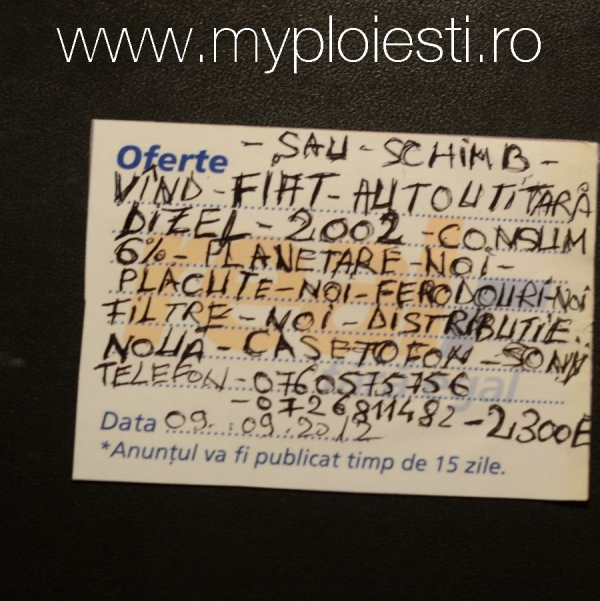 www.myploiesti.ro
Oferte - SAU - SCHIMB -
VÎND - FIAT - AUTOUTITARĂ
DIZEL - 2002 CONSUM
6% - PLANETARE - NOI -
PLACUTE - NOI - FERODOURI - NOI
FILTRE - NOI - DISTRIBUTIE.
NOUA - CASETOFON - SONY
TELEFON - 0760575756
- 0726811482 - 2300E
Data 09.09.2012
*Anunțul va fi publicat timp de 15 zile.